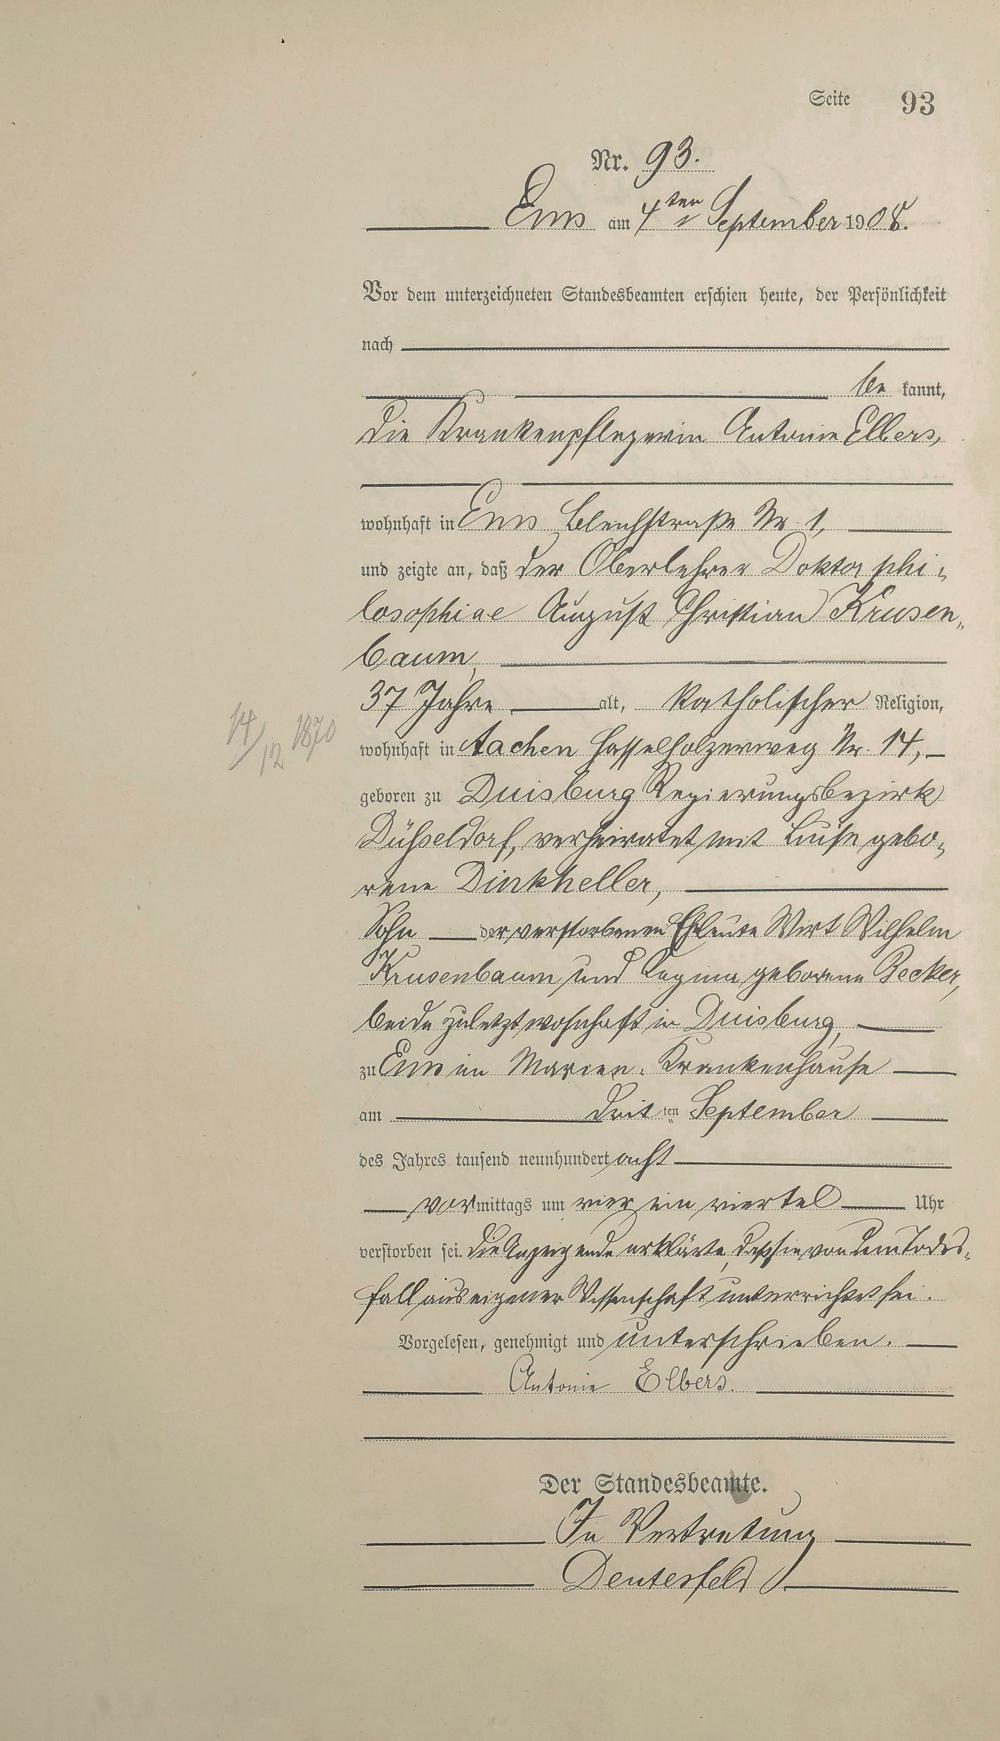 Seite 93
Nr. 93.
Ems am 4ten September 1908.
Vor dem unterzeichneten Standesbeamten erschien heute, der Persönlichkeit
nach
be kannt,
die Krankenpflegerin Antonie Elbers,
wohnhaft in Ems Bleichstraße Nr 1,
und zeigte an, daß der Oberlehrer Doktor phi-
losophiae August Christian Krusen-
baum,
37 Jahre alt, katholischer Religion,
14/12 1870
wohnhaft in Aachen Hasselholzerweg Nr. 14,
geboren zu Duisburg Regierungsbezirk
Düsseldorf, verheiratet mit Luise gebo-
rene Dinkheller,
Sohn der verstorbenen Eheleute Wirt Wilhelm
Krusenbaum und Regina geborene Becker,
beide zuletzt wohnhaft in Duisburg,
zu Ems im Marien-Krankenhause
am dritten September
des Jahres tausend neunhundert acht
vormittags um vier ein viertel Uhr
verstorben sei. Die Anzeigende erklärte, daß sie von dem Todes-
fall aus eigener Wissenschaft unterrichtet sei.
Vorgelesen, genehmigt und unterschrieben.
Antonie Elbers.
Der Standesbeamte.
In Vertretung